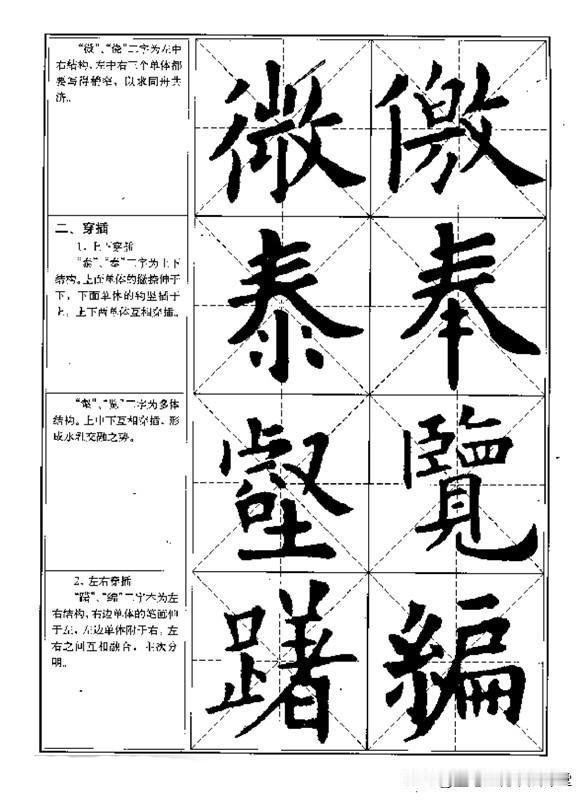 “微”、二字为左中
右结构，左中右三个单体都
要写得稍窄，以求同舟共
济。
微
二、穿插
1、上下穿插
“泰”、“奉”二字为上下
结构。上面单体的撇捺伸于
下，下面单体的钩竖插于
上，上下两单体互相穿插。
泰 奉
“壑”、“览”二字为多体
结构。上中下互相穿插，形
成水乳交融之势。
壑 覽
2、左右穿插
“躇”、“编”二字本为左
右结构，右边单体的笔画伸
于左，左边单体附于右，左
右之间互相融合，主次分
明。
躇 編